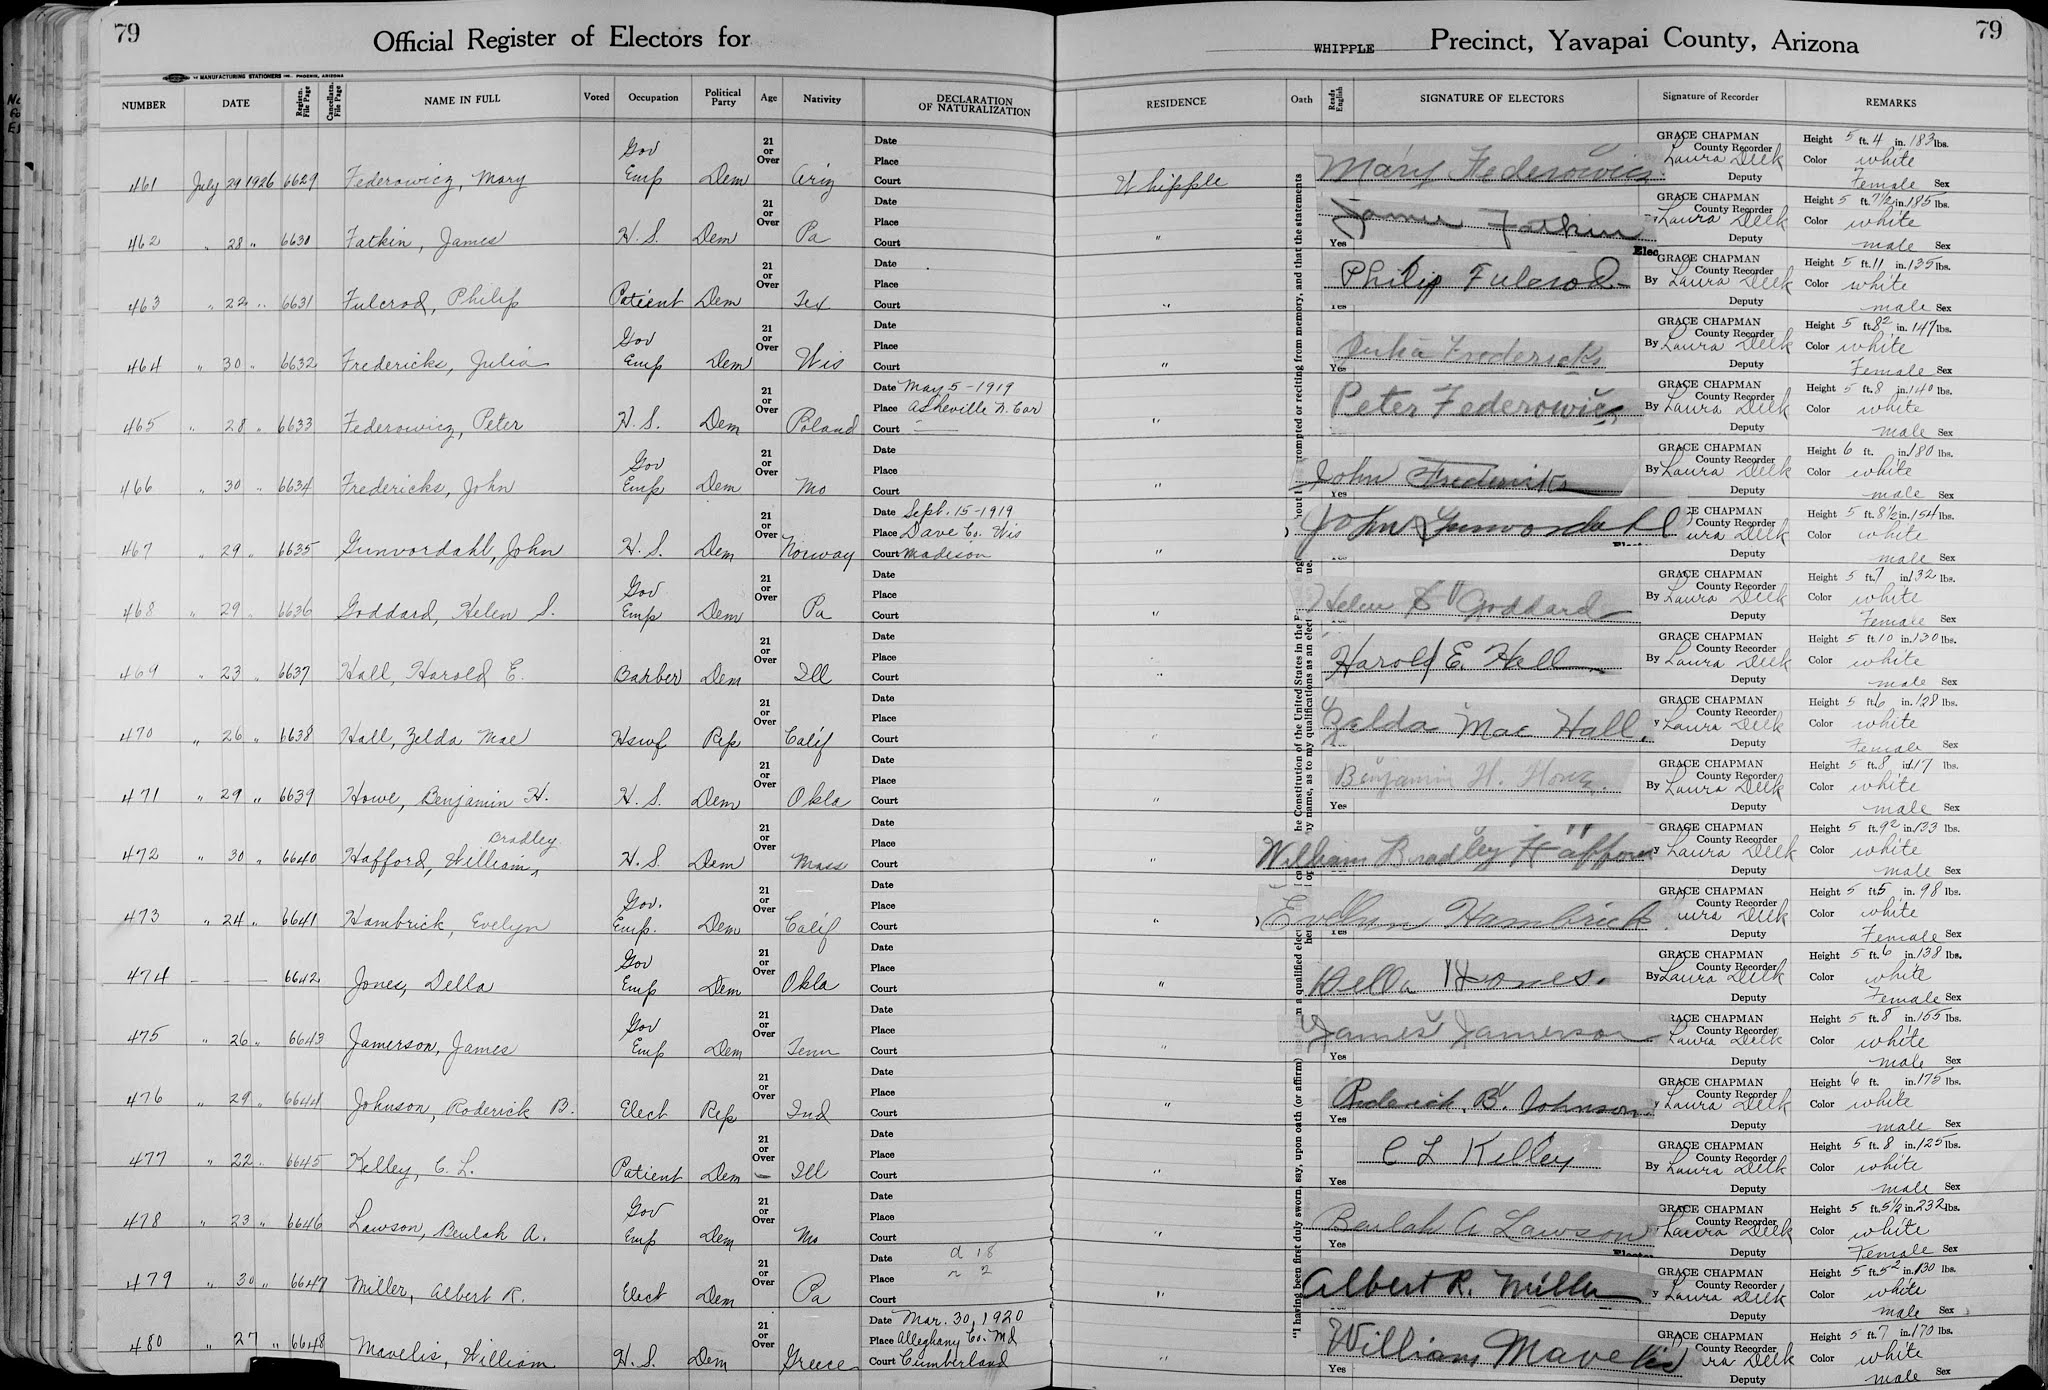 79
Official Register of Electors for
WHIPPLE Precinct, Yavapai County, Arizona
79
MANUFACTURING STATIONERS INC. PHOENIX, ARIZONA
NUMBER DATE Registn. File Page Cancellatn. File Page NAME IN FULL Voted Occupation Political Party Age Nativity DECLARATION OF NATURALIZATION RESIDENCE Oath Reads English SIGNATURE OF ELECTORS Signature of Recorder REMARKS
461 July 29 1926 6629 Federowicz, Mary Gov Emp Dem 21 or Over Ariz Date Place Court Whipple Mary Federowicz GRACE CHAPMAN County Recorder Laura Delk Deputy Height 5 ft. 4 in. 183 lbs. Color white Female Sex
462 " 28 " 6630 Fatkin, James H. S. Dem 21 or Over Pa Date Place Court " Yes James Fatkin GRACE CHAPMAN County Recorder Laura Delk Deputy Height 5 ft. 7 1/2 in. 185 lbs. Color white male Sex
463 " 22 " 6631 Fulcrod, Philip Patient Dem 21 or Over Tex Date Place Court " Yes Philip Fulcrod GRACE CHAPMAN County Recorder By Laura Delk Deputy Height 5 ft. 11 in. 135 lbs. Color white male Sex
464 " 30 " 6632 Fredericks, Julia Gov Emp Dem 21 or Over Wis Date Place Court " Yes Julia Fredericks GRACE CHAPMAN County Recorder By Laura Delk Deputy Height 5 ft. 8 2 in. 147 lbs. Color white Female Sex
465 " 28 " 6633 Federowicz, Peter H. S. Dem 21 or Over Poland Date May 5-1919 Place Asheville N. Car Court — " Peter Federowicz GRACE CHAPMAN County Recorder By Laura Delk Deputy Height 5 ft. 8 in. 140 lbs. Color white male Sex
466 " 30 " 6634 Fredericks, John Gov Emp Dem 21 or Over Mo Date Place Court " Yes John Fredericks GRACE CHAPMAN County Recorder By Laura Delk Deputy Height 6 ft. in. 180 lbs. Color white male Sex
467 " 29 " 6635 Gunvordahl, John H. S. Dem 21 or Over Norway Date Sept. 15-1919 Place Dave Co. Wis Court Madison " Yes John Gunvordahl CE CHAPMAN County Recorder ura Delk Deputy Height 5 ft. 8 1/2 in. 154 lbs. Color white male Sex
468 " 29 " 6636 Goddard, Helen S. Gov Emp Dem 21 or Over Pa Date Place Court " Helen S Goddard GRACE CHAPMAN County Recorder By Laura Delk Deputy Height 5 ft. 7 in. 132 lbs. Color white Female Sex
469 " 23 " 6637 Hall, Harold E. Barber Dem 21 or Over Ill Date Place Court " Harold E. Hall GRACE CHAPMAN County Recorder By Laura Delk Deputy Height 5 ft. 10 in. 130 lbs. Color white male Sex
470 " 26 " 6638 Hall, Zelda Mae Hswf Rep 21 or Over Calif Date Place Court " Zelda Mae Hall. GRACE CHAPMAN County Recorder y Laura Delk Deputy Height 5 ft. 6 in. 128 lbs. Color white Female Sex
471 " 29 " 6639 Howe, Benjamin H. H. S. Dem 21 or Over Okla Date Place Court " Yes Benjamin H. Howe. GRACE CHAPMAN County Recorder By Laura Delk Deputy Height 5 ft. 8 in. 117 lbs. Color white male Sex
472 " 30 " 6640 Hafford, William Bradley H. S. Dem 21 or Over Mass Date Place Court " William Bradley Hafford GRACE CHAPMAN County Recorder y Laura Delk Deputy Height 5 ft. 9 2 in. 133 lbs. Color white male Sex
473 " 24 " 6641 Hambrick, Evelyn Gov. Emp. Dem 21 or Over Calif Date Place Court " Yes Evelyn Hambrick GRACE CHAPMAN County Recorder ura Delk Deputy Height 5 ft. 5 in. 98 lbs. Color white Female Sex
474 — — — 6642 Jones, Della Gov Emp Dem 21 or Over Okla Date Place Court " Della Jones. GRACE CHAPMAN County Recorder By Laura Delk Deputy Height 5 ft. 6 in. 138 lbs. Color white Female Sex
475 " 26 " 6643 Jamerson, James Gov Emp Dem 21 or Over Tenn Date Place Court " Yes James Jamerson RACE CHAPMAN County Recorder Laura Delk Deputy Height 5 ft. 8 in. 155 lbs. Color white male Sex
476 " 29 " 6644 Johnson, Roderick B. Elect Rep 21 or Over Ind Date Place Court " Yes Roderick B. Johnson GRACE CHAPMAN County Recorder y Laura Delk Deputy Height 6 ft. in. 175 lbs. Color white male Sex
477 " 22 " 6645 Kelley, C. L. Patient Dem 21 or Over Ill Date Place Court " Yes C L Kelley GRACE CHAPMAN County Recorder By Laura Delk Deputy Height 5 ft. 8 in. 125 lbs. Color white male Sex
478 " 23 " 6646 Lawson, Beulah A. Gov Emp Dem 21 or Over Mo Date Place Court " Yes Beulah A Lawson GRACE CHAPMAN County Recorder Laura Delk Deputy Height 5 ft. 5 1/2 in. 232 lbs. Color white Female Sex
479 " 30 " 6647 Miller, Albert R. Elect Dem 21 or Over Pa Date d 18 Place n 2 Court " Albert R. Miller GRACE CHAPMAN County Recorder y Laura Delk Deputy Height 5 ft. 5 2 in. 130 lbs. Color white male Sex
480 " 27 " 6648 Mavelis, William H. S. Dem 21 or Over Greece Date Mar. 30, 1920 Place Alleghany Co. Md Court Cumberland " Yes William Mavelis GRACE CHAPMAN County Recorder ra Delk Deputy Height 5 ft. 7 in. 170 lbs. Color white male Sex
"I having been first duly sworn, say, upon oath (or affirm)